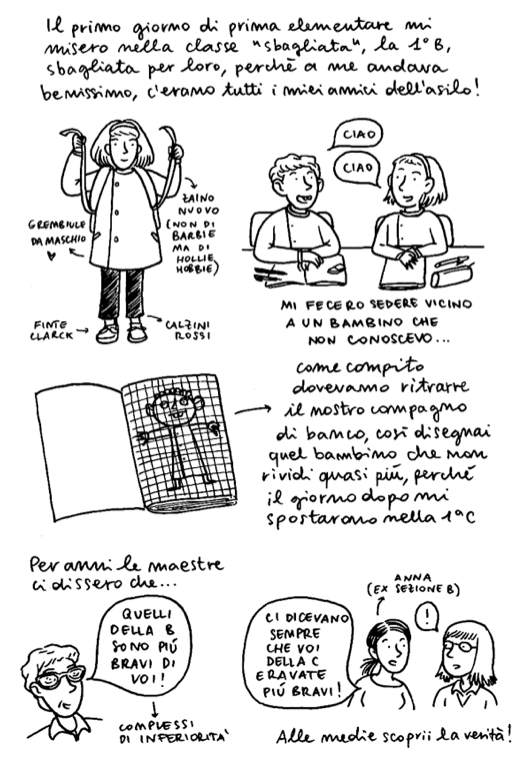 Il primo giorno di prima elementare mi
misero nella classe "sbagliata", la 1°B,
sbagliata per loro, perchè a me andava
benissimo, c'erano tutti i miei amici dell'asilo!
GREMBIULE
DA MASCHIO
ZAINO
NUOVO
(NON DI
BARBIE
MA DI
HOLLIE
HOBBIE)
FINTE
CLARCK
CALZINI
ROSSI
CIAO
CIAO
MI FECERO SEDERE VICINO
A UN BAMBINO CHE
NON CONOSCEVO...
come compito
dovevamo ritrarre
il nostro compagno
di banco, così disegnai
quel bambino che non
rividi quasi più, perché
il giorno dopo mi
spostarono nella 1ªC
Per anni le maestre
ci dissero che...
QUELLI
DELLA B
SONO PIÚ
BRAVI DI
VOI!
COMPLESSI
DI INFERIORITA'
ANNA
(EX SEZIONE B)
CI DICEVANO
SEMPRE
CHE VOI
DELLA C
ERAVATE
PIÚ BRAVI!
!
Alle medie scoprii la verità!